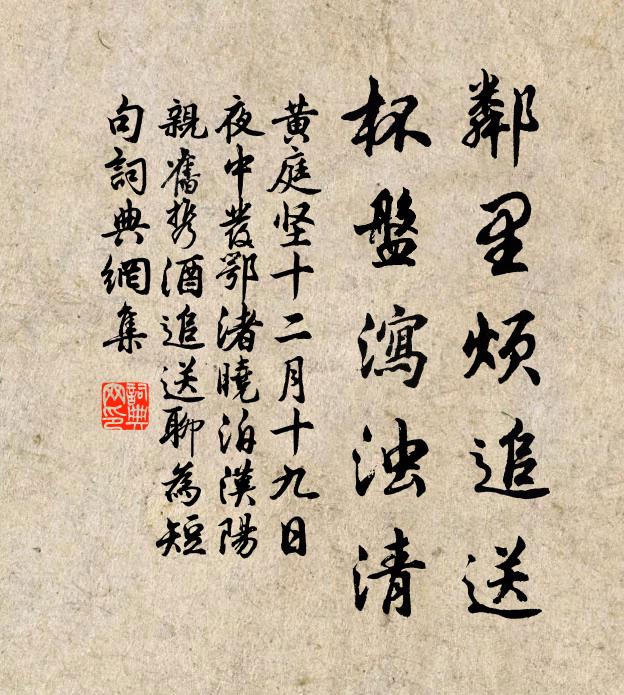 鄰里烦追送
杯盤瀉浊清
黄庭坚十二月十九日
夜中發鄂渚曉泊漢陽
親舊携酒追送聊為短
句詞典網集
詞典
网印